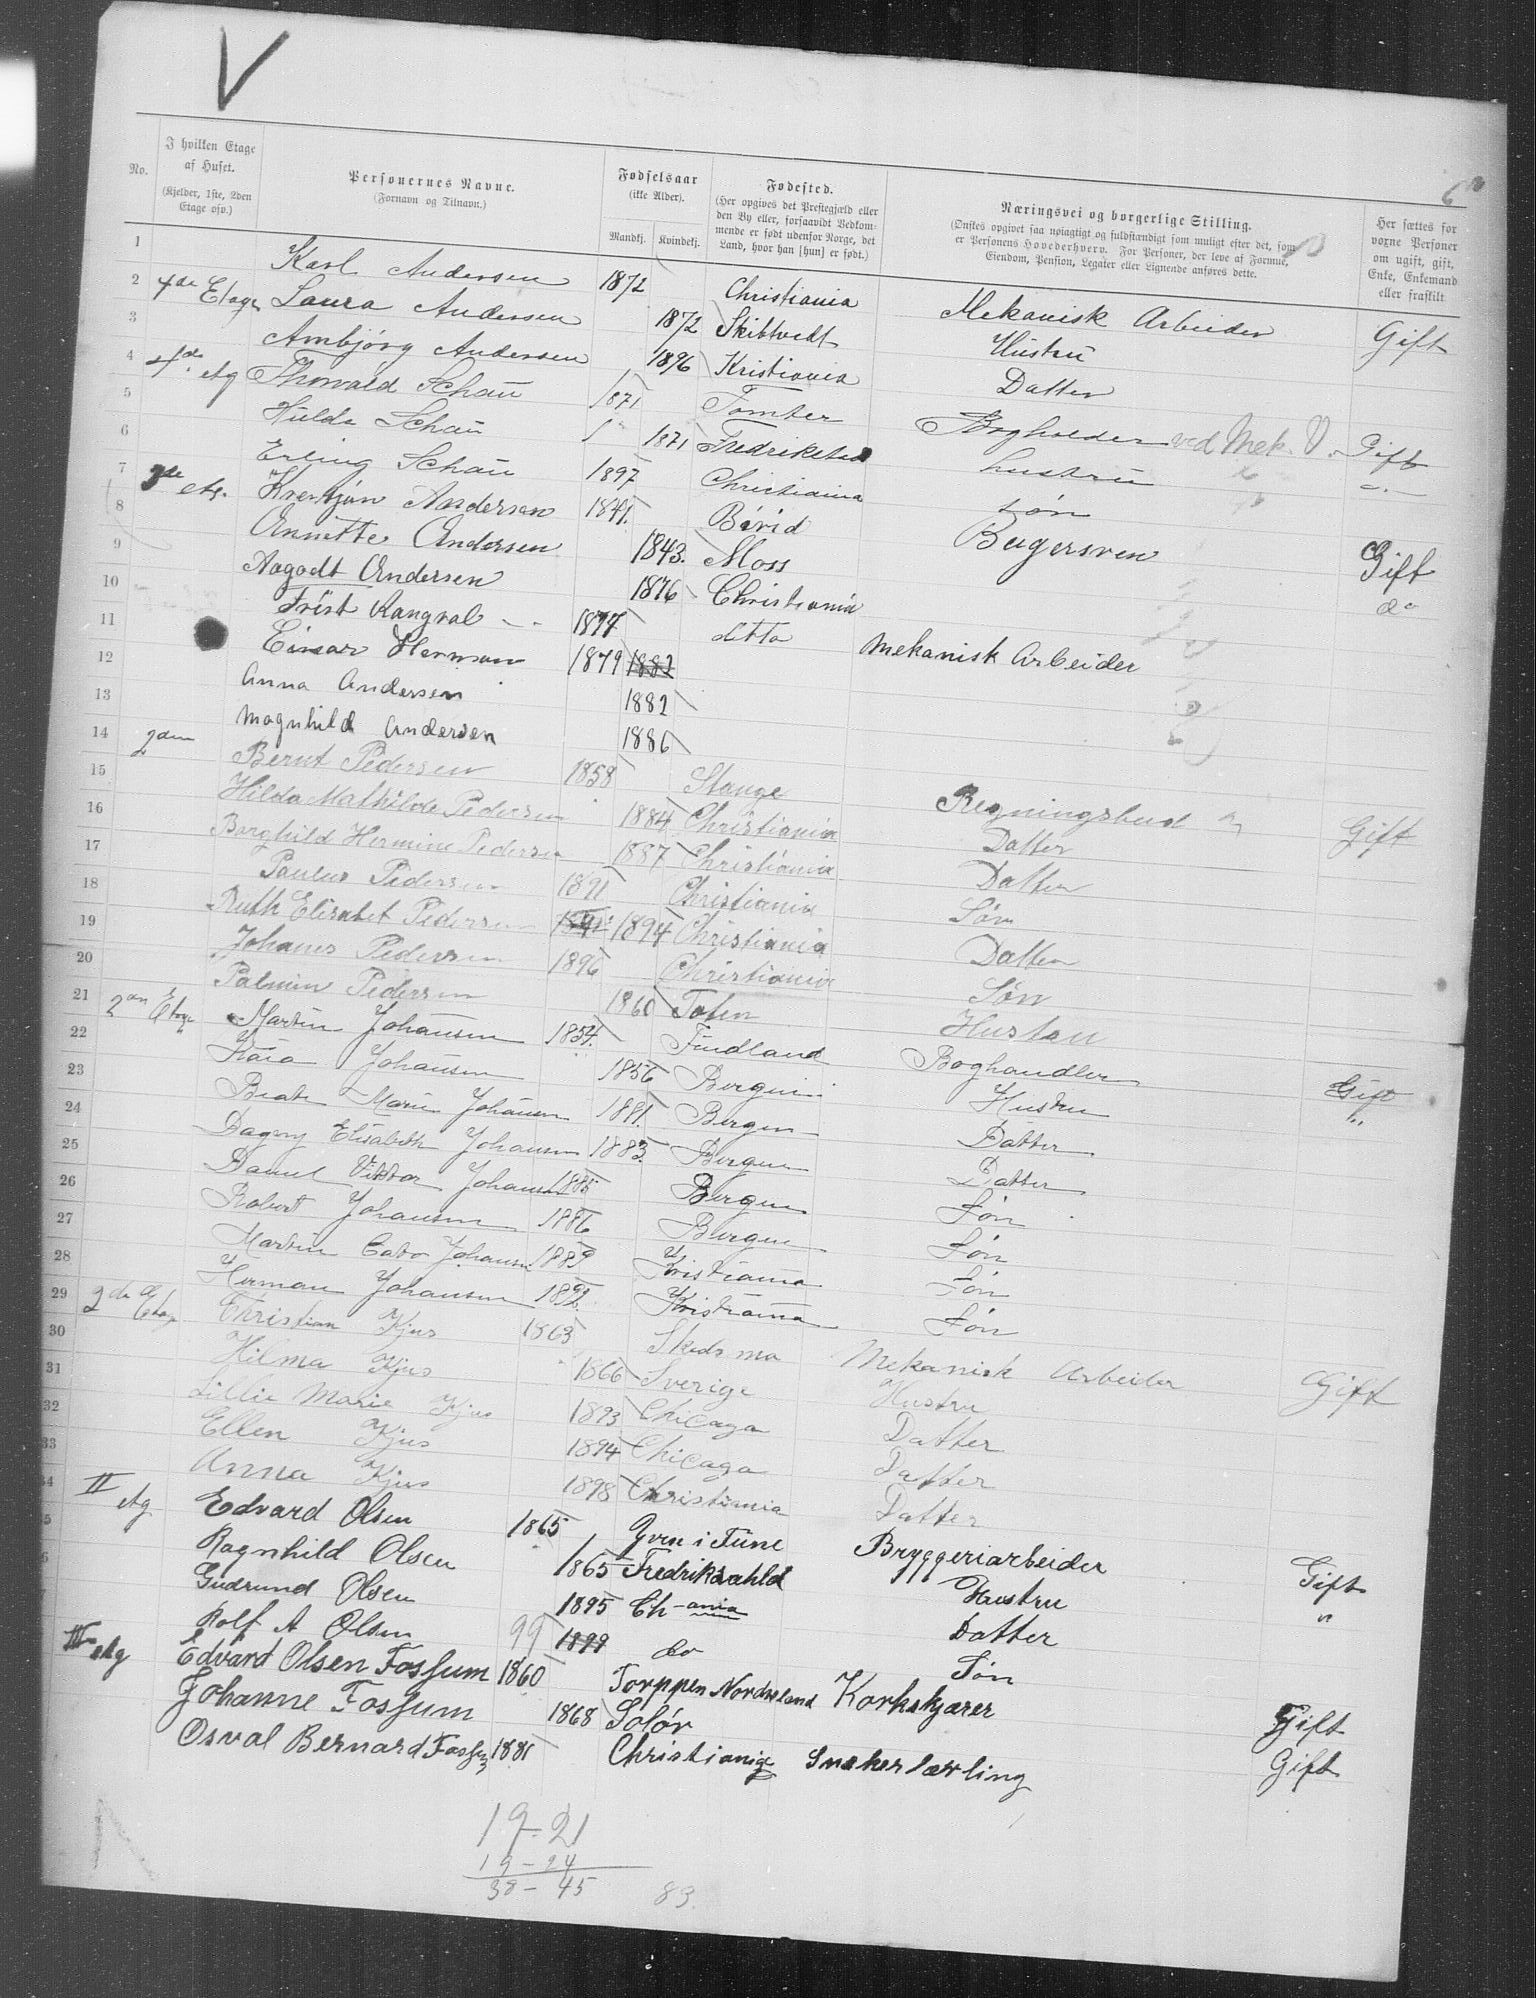 V
6
No.
I hvilken Etage af Huset. (Kjelder, 1ste, 2den Etage osv.)
Personernes Navne. (Fornavn og Tilnavn.)
Fødselsaar (ikke Alder). Mandkj. Kvindekj.
Fødested. (Her opgives det Prestegjæld eller den By eller, forsaavidt Vedkommende er født udenfor Norge, det Land, hvor han [hun] er født.)
Næringsvei og borgerlige Stilling. (Ønskes opgivet saa nøiagtigt og fuldstændigt som muligt efter det, som er Personens Hovederhverv. For Personer, der leve af Formue, Eiendom, Pension, Legater eller Lignende anføres dette.
Her sættes for vorne Personer om ugift, gift, Enke, Enkemand eller fraskilt
1 Karl Andersen 1872 Christiania Mekanisk Arbeider Gift
2 4de Etage Laura Andersen 1872 Skibtvedt Hustru
3 Ambjörg Andersen 1896 Kristiania Datter
4 4de etg Thorvald Schau 1871 Tomter Bogholder ved Mek. V. Gift
5 Hulda Schau 1871 Fredrikstad hustru
6 Erling Schau 1897 Christiania søn
7 3de etg. Kristjan Andersen 1841. Bagersven Gift
8 Annette Andersen 1843. Moss do
9 Aagodt Andersen 1876 Christiania
10 1877 ditto Mekanisk Arbeider
11 Einar Herman 1879 1882
12 Anna Andersen 1882
13 Magnhild Andersen 1886
14 2den Bernt Pedersen 1858 Stange Regningsbud Gift
15 Hilda Mathilde Pedersen 1884 Christiania Datter
16 Borghild Hermine Pedersen 1887 Christiania Datter
17 Paulus Pedersen 1891 Christiania Søn
18 Ruth Elisabet Pedersen 1894 Christiania Datter
19 Johanes Pedersen 1896 Christiania Søn
20 Palmine Pedersen 1860 Toten Hustru
21 2den Etage Martin Johansen 1854. Findland Boghandler Gift
22 Kaia Johansen 1856 Bergen Hustru "
23 Beate Marie Johansen 1881. Bergen Datter
24 Dagny Elisabeth Johansen 1883. Bergen Datter
25 Daniel Viktor Johansen 1885 Bergen Søn
26 Robert Johansen 1886 Bergen Søn
27 Martin Cato Johansen 1889 Kristiania Søn
28 Herman Johansen 1892. Kristiania Søn
29 2de Etage Christian Kjus 1863 Skedsmo Mekanisk Arbeider Gift
30 Hilma Kjus 1866 Sverige Hustru
31 Lillie Marie Kjus 1893 Chicago Datter
32 Ellen Kjus 1894 Chicago Datter
33 Anna Kjus 1898 Christiania Datter
34 II etg Edvard Olsen 1865 Yven i Tune Bryggeriarbeider Gift
Ragnhild Olsen 1865 Fredrikshald Hustru "
Gudrund Olsen 1895 Ch-ania Datter
Rolf A Olsen 99 1899 do Søn
III etg Edvard Olsen Fossum 1860 Torppen Nordreland Korkskjærer Gift
Johanne Fossum 1868 Solør Gift
Osval Bernard Fossum 1881 Christiania Snekerlærling
19-21
19-24
38-45 83